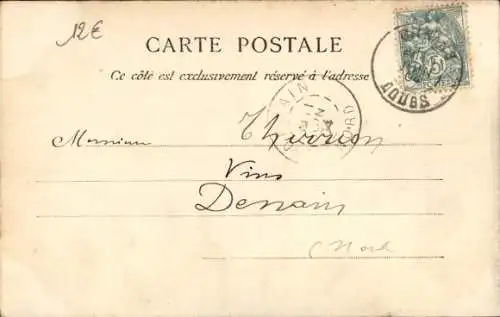 12€
CARTE POSTALE
Ce côté est exclusivement réservé à l'adresse
DOUBS
AIN
NORD
Monsieur
Vins
Denain
(Nord